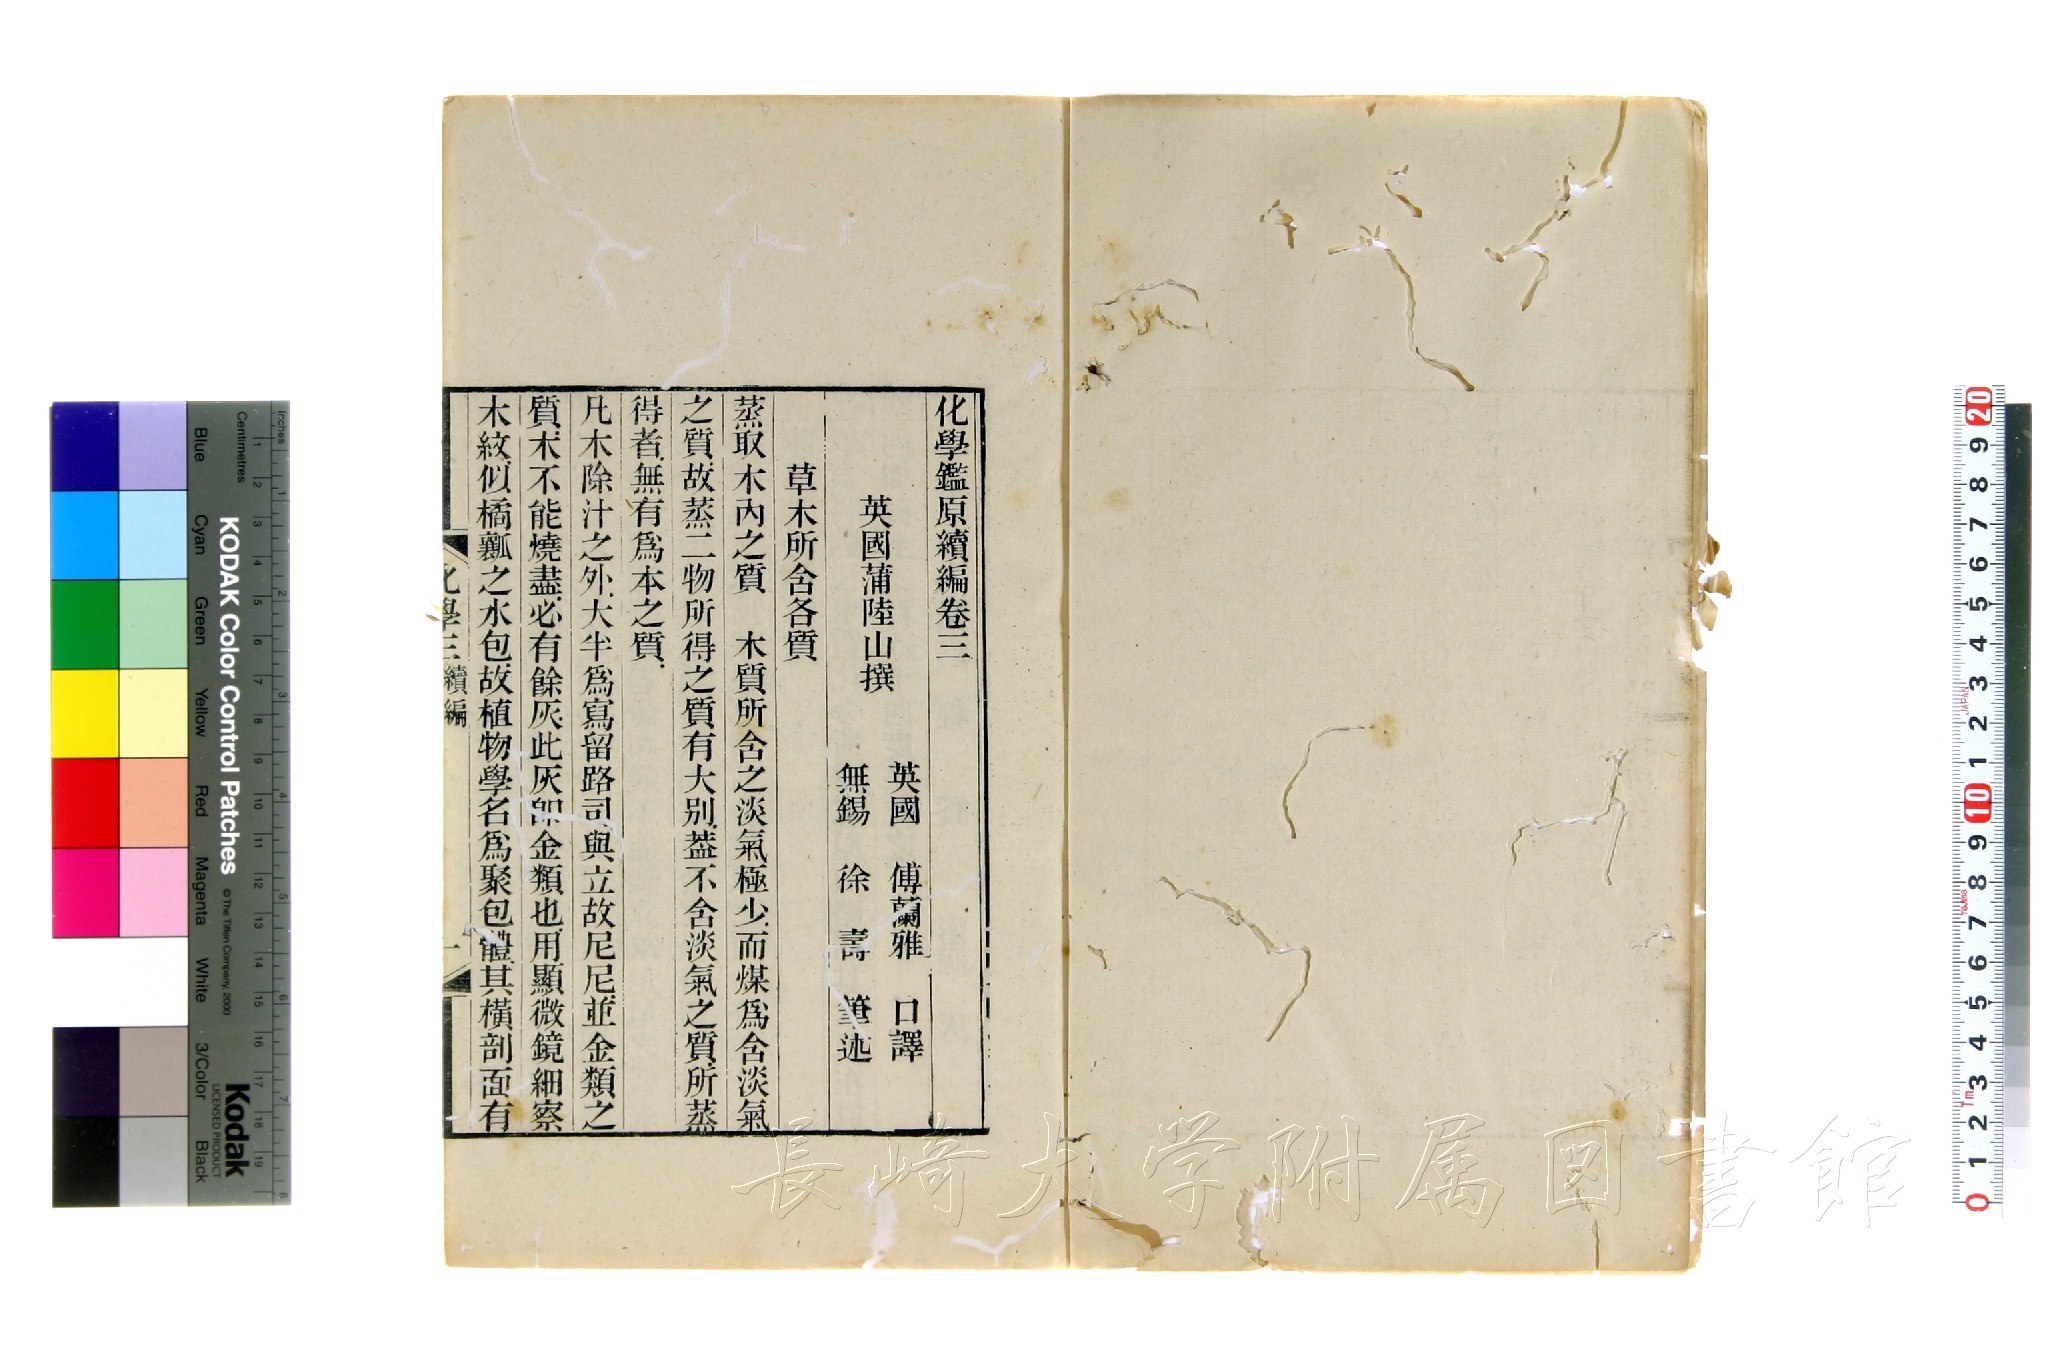 化學鑑原續編卷三
英國蒲陸山撰
英國 傅蘭雅 口譯
無錫 徐 壽 筆述
草木所含各質
蒸取木內之質 木質所含之淡氣極少而煤爲含淡氣
之質故蒸二物所得之質有大别葢不含淡氣之質所蒸
得者無有爲本之質
凡木除汁之外大半爲寫留路司與立故尼尼並金類之
質木不能燒盡必有餘灰此灰卽金類也用顯微鏡細察
木紋似橘瓤之水包故植物學名爲聚包體其橫剖面有
化學三 續編
一
長崎大学附属図書館
KODAK Color Control Patches
© The Tiffen Company, 2000
Kodak
LICENSED PRODUCT
Inches
Centimetres
Blue
Cyan
Green
Yellow
Red
Magenta
White
3/Color
Black
1 2 3 4 5 6 7 8
1 2 3 4 5 6 7 8 9 10 11 12 13 14 15 16 17 18 19
20 9 8 7 6 5 4 3 2 1 10 9 8 7 6 5 4 3 2 1 0
JAPAN
1m